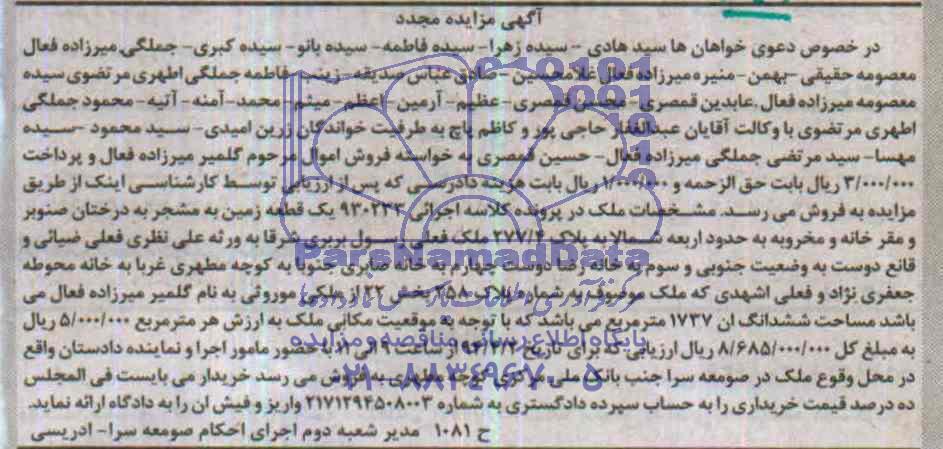 آگهی مزایده مجدد
در خصوص دعوی خواهان ها سید هادی - سیده زهرا- سیده فاطمه- سیده بانو- سیده کبری- جملگی میرزاده فعال
معصومه حقیقی -بهمن-منیره میرزاده فعال غلامحسین- صادق عباس صدیقه- زینب- فاطمه جملگی اطهری مرتضوی سیده
معصومه میرزاده فعال .عابدین قمصری- محسن قمصری- عظیم- آرمین- اعظم- میثم- محمد-آمنه- آتیه- محمود جملگی
اطهری مرتضوی با وکالت آقایان عبدالغفار حاجی پور و کاظم پاچ به طرفیت خواندگان زرین امیدی- سید محمود -سیده
مهسا- سید مرتضی جملگی میرزاده فعال- حسین قمصری به خواسته فروش اموال مرحوم گلمیر میرزاده فعال و پرداخت
۳/۰۰۰/۰۰۰ ریال بابت حق الزحمه و ۱/۰۰۰/۰۰۰ ریال بابت هزینه دادرسی که پس از ارزیابی توسط کارشناسی اینک از طریق
مزایده به فروش می رسد. مشخصات ملک در پرونده کلاسه اجرائی ۹۳۰۲۳۳ یک قطعه زمین به مشجر به درختان صنوبر
و مقر خانه و مخروبه به حدود اربعه شمالا به پلاک ۲۷۷/۲ ملک فعلی رسول بربری شرقا به ورثه علی نظری فعلی ضیائی و
قانع دوست به وضعیت جنوبی و سوم به خانه رضا دوست چهارم به خانه صابری جنوبا به کوچه مطهری غربا به خانه محوطه
جعفری نژاد و فعلی اشهدی که ملک موصوف به شماره پلاک ۲۵۸ بخش ۲۲ از ملکی موروثی به نام گلمیر میرزاده فعال می
باشد مساحت ششدانگ ان ۱۷۳۷ مترمربع می باشد که با توجه به موقعیت مکانی ملک به ارزش هر مترمربع ۵/۰۰۰/۰۰۰ ریال
به مبلغ کل ۸/۶۸۵/۰۰۰/۰۰۰ ریال ارزیابی که برای تاریخ از ساعت با حضور مامور اجرا و نماینده دادستان واقع
در محل وقوع ملک در صومعه سرا جنب بانک ملی مرکزی کوچه مطهری به فروش می رسد خریدار می بایست فی المجلس
ده درصد قیمت خریداری را به حساب سپرده دادگستری به شماره ۲۱۷۱۲۹۴۵۰۸۰۰۳ واریز و فیش ان را به دادگاه ارائه نماید.
ح ۱۰۸۱ مدیر شعبه دوم اجرای احکام صومعه سرا- ادریسی
ParsNamadData
پایگاه اطلاع رسانی مناقصه و مزایده
۰۲۱-۸۸۳۴۹۶۷۰-۵